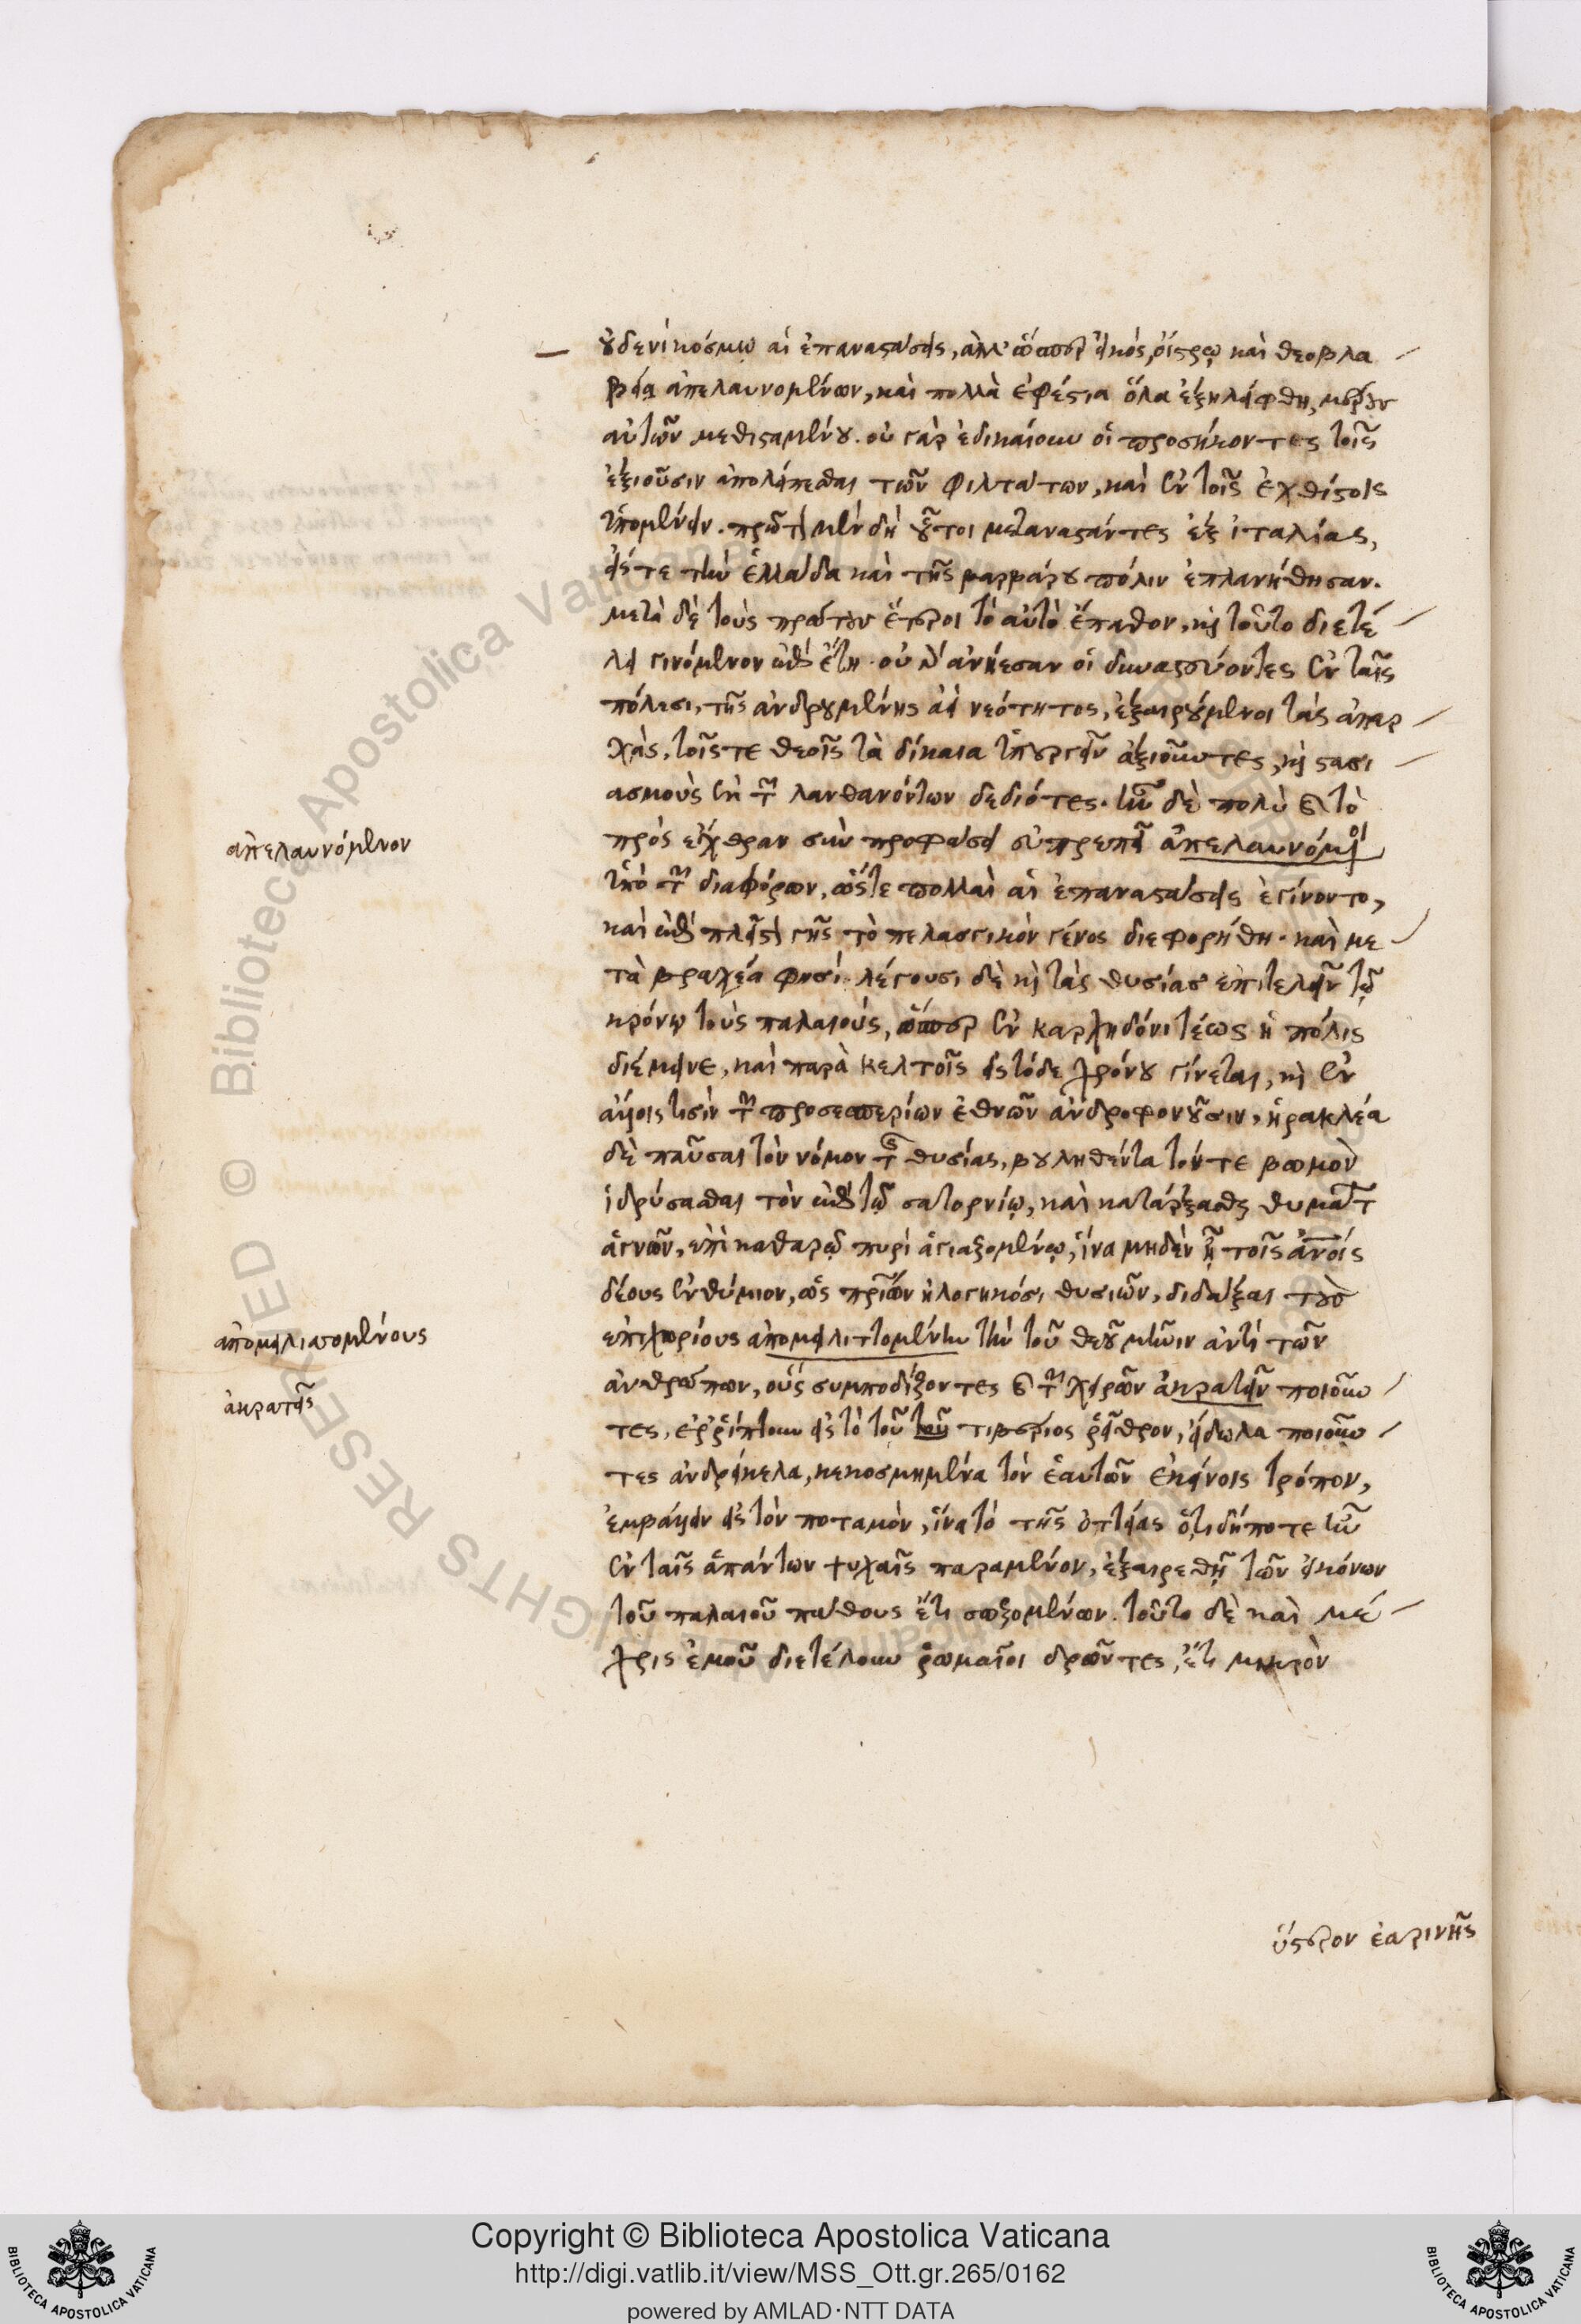 οὐδενὶ κόσμῳ αἱ ἐπαναστάσεις, ἀλλ' ὥσπερ εἰκός, οἴστρῳ καὶ θεοβλα
βείᾳ ἀπελαυνομένων, καὶ πολλὰ ἐφέστια ὅλα ἐξηλείφθη, μέρους
αὐτῶν μεθισταμένου. οὐ γὰρ ἐδικαίουν οἱ προσήκοντες τοῖς
ἐξιοῦσιν ἀπολείπεσθαι τῶν φιλτάτων, καὶ ἐν τοῖς ἐχθίστοις
ὑπομένειν. πρῶτοι μὲν δὴ οὗτοι μεταναστάντες ἐξ ἰταλίας,
εἴς τε τὴν ἑλλάδα καὶ τῆς βαρβάρου πόλιν ἐπλανήθησαν.
μετὰ δὲ τοὺς πρώτους ἕτεροι τὸ αὐτὸ ἔπαθον, καὶ τοῦτο διετέ
λει γινόμενον ἐπὶ ἔτη. οὐ γὰρ ἀνήεσαν οἱ δυναστεύοντες ἐν ταῖς
πόλεσι, τῆς ἀνδρουμένης ἀεὶ νεότητος, ἐξαιρούμενοι τὰς ἀπαρ
χάς, τοῖς τε θεοῖς τὰ δίκαια ὑπουργεῖν ἀξιοῦντες, καὶ στασι
ασμοὺς ἐκ τῶν λανθανόντων δεδιότες. ἦν δὲ πολὺ καὶ τὸ
πρὸς ἔχθραν σὺν προφάσει εὐπρεπεῖ ἀπελαυνόμενοι
ὑπὸ τῶν διαφόρων, ὥστε πολλαὶ αἱ ἐπαναστάσεις ἐγίνοντο,
καὶ ἐπὶ πλεῖστον γῆς τὸ πελασγικὸν γένος διεφορήθη. καὶ με
τὰ βραχέα φησί. λέγουσι δὲ καὶ τὰς θυσίας ἐπιτελεῖν τῷ
κρόνῳ τοὺς παλαιούς, ὥσπερ ἐν καρχηδόνι τέως ἡ πόλις
διέμεινε, καὶ παρὰ κελτοῖς ἐς τόδε χρόνου γίνεται, καὶ ἐν
ἄλλοις τισὶν τῶν προσεσπερίων ἐθνῶν ἀνδροφονοῦσιν, ἡρακλέα
δὲ παῦσαι τὸν νόμον τῆς θυσίας, βουληθέντα τόν τε βωμὸν
ἱδρύσασθαι τὸν ἐπὶ τῷ σατορνίῳ, καὶ κατάρξασθαι θυμάτων
ἁγνῶν, ἐπὶ καθαρῷ πυρὶ ἁγιαζομένῳ, ἵνα μηδὲν ᾖ τοῖς ἀνοις
δέους ἐνθύμιον, ὡς πατρίων ἠλογηκόσι θυσιῶν, διδάξαι τοὺς
ἐπιχωρίους ἀπομειλιττομένην τὴν τοῦ θεοῦ μῆνιν ἀντὶ τῶν
ἀνθρώπων, οὓς συμποδίζοντες καὶ τῶν χειρῶν ἀκρατεῖν ποιοῦν
τες, ἐρρίπτουν εἰς τὸ τοῦ τοῦ τιβέριος ῥεῖθρον, εἴδωλα ποιοῦν
τες ἀνδρείκελα, κεκοσμημένα τὸν ἑαυτῶν ἐκείνοις τρόπον,
ἐμβαλεῖν εἰς τὸν ποταμόν, ἵνα τὸ τῆς ὀττείας ὅτι δήποτε ἦν
ἐν ταῖς ἁπάντων ψυχαῖς παραμένον, ἐξαιρεθῇ τῶν εἰκόνων
τοῦ παλαιοῦ πάθους ἔτι σωζομένων. τοῦτο δὲ καὶ μέ
χρις ἐμοῦ διετέλουν ῥωμαῖοι δρῶντες, ἔτι μικρὸν
ἀπελαυνόμενον
ἀπομειλισσομένους
ἀκρατεῖς
ὕστερον ἐαρινῆς
© Biblioteca Apostolica Vaticana
Copyright © Biblioteca Apostolica Vaticana
http://digi.vatlib.it/view/MSS_Ott.gr.265/0162
powered by AMLAD·NTT DATA
BIBLIOTECA APOSTOLICA VATICANA
BIBLIOTECA APOSTOLICA VATICANA